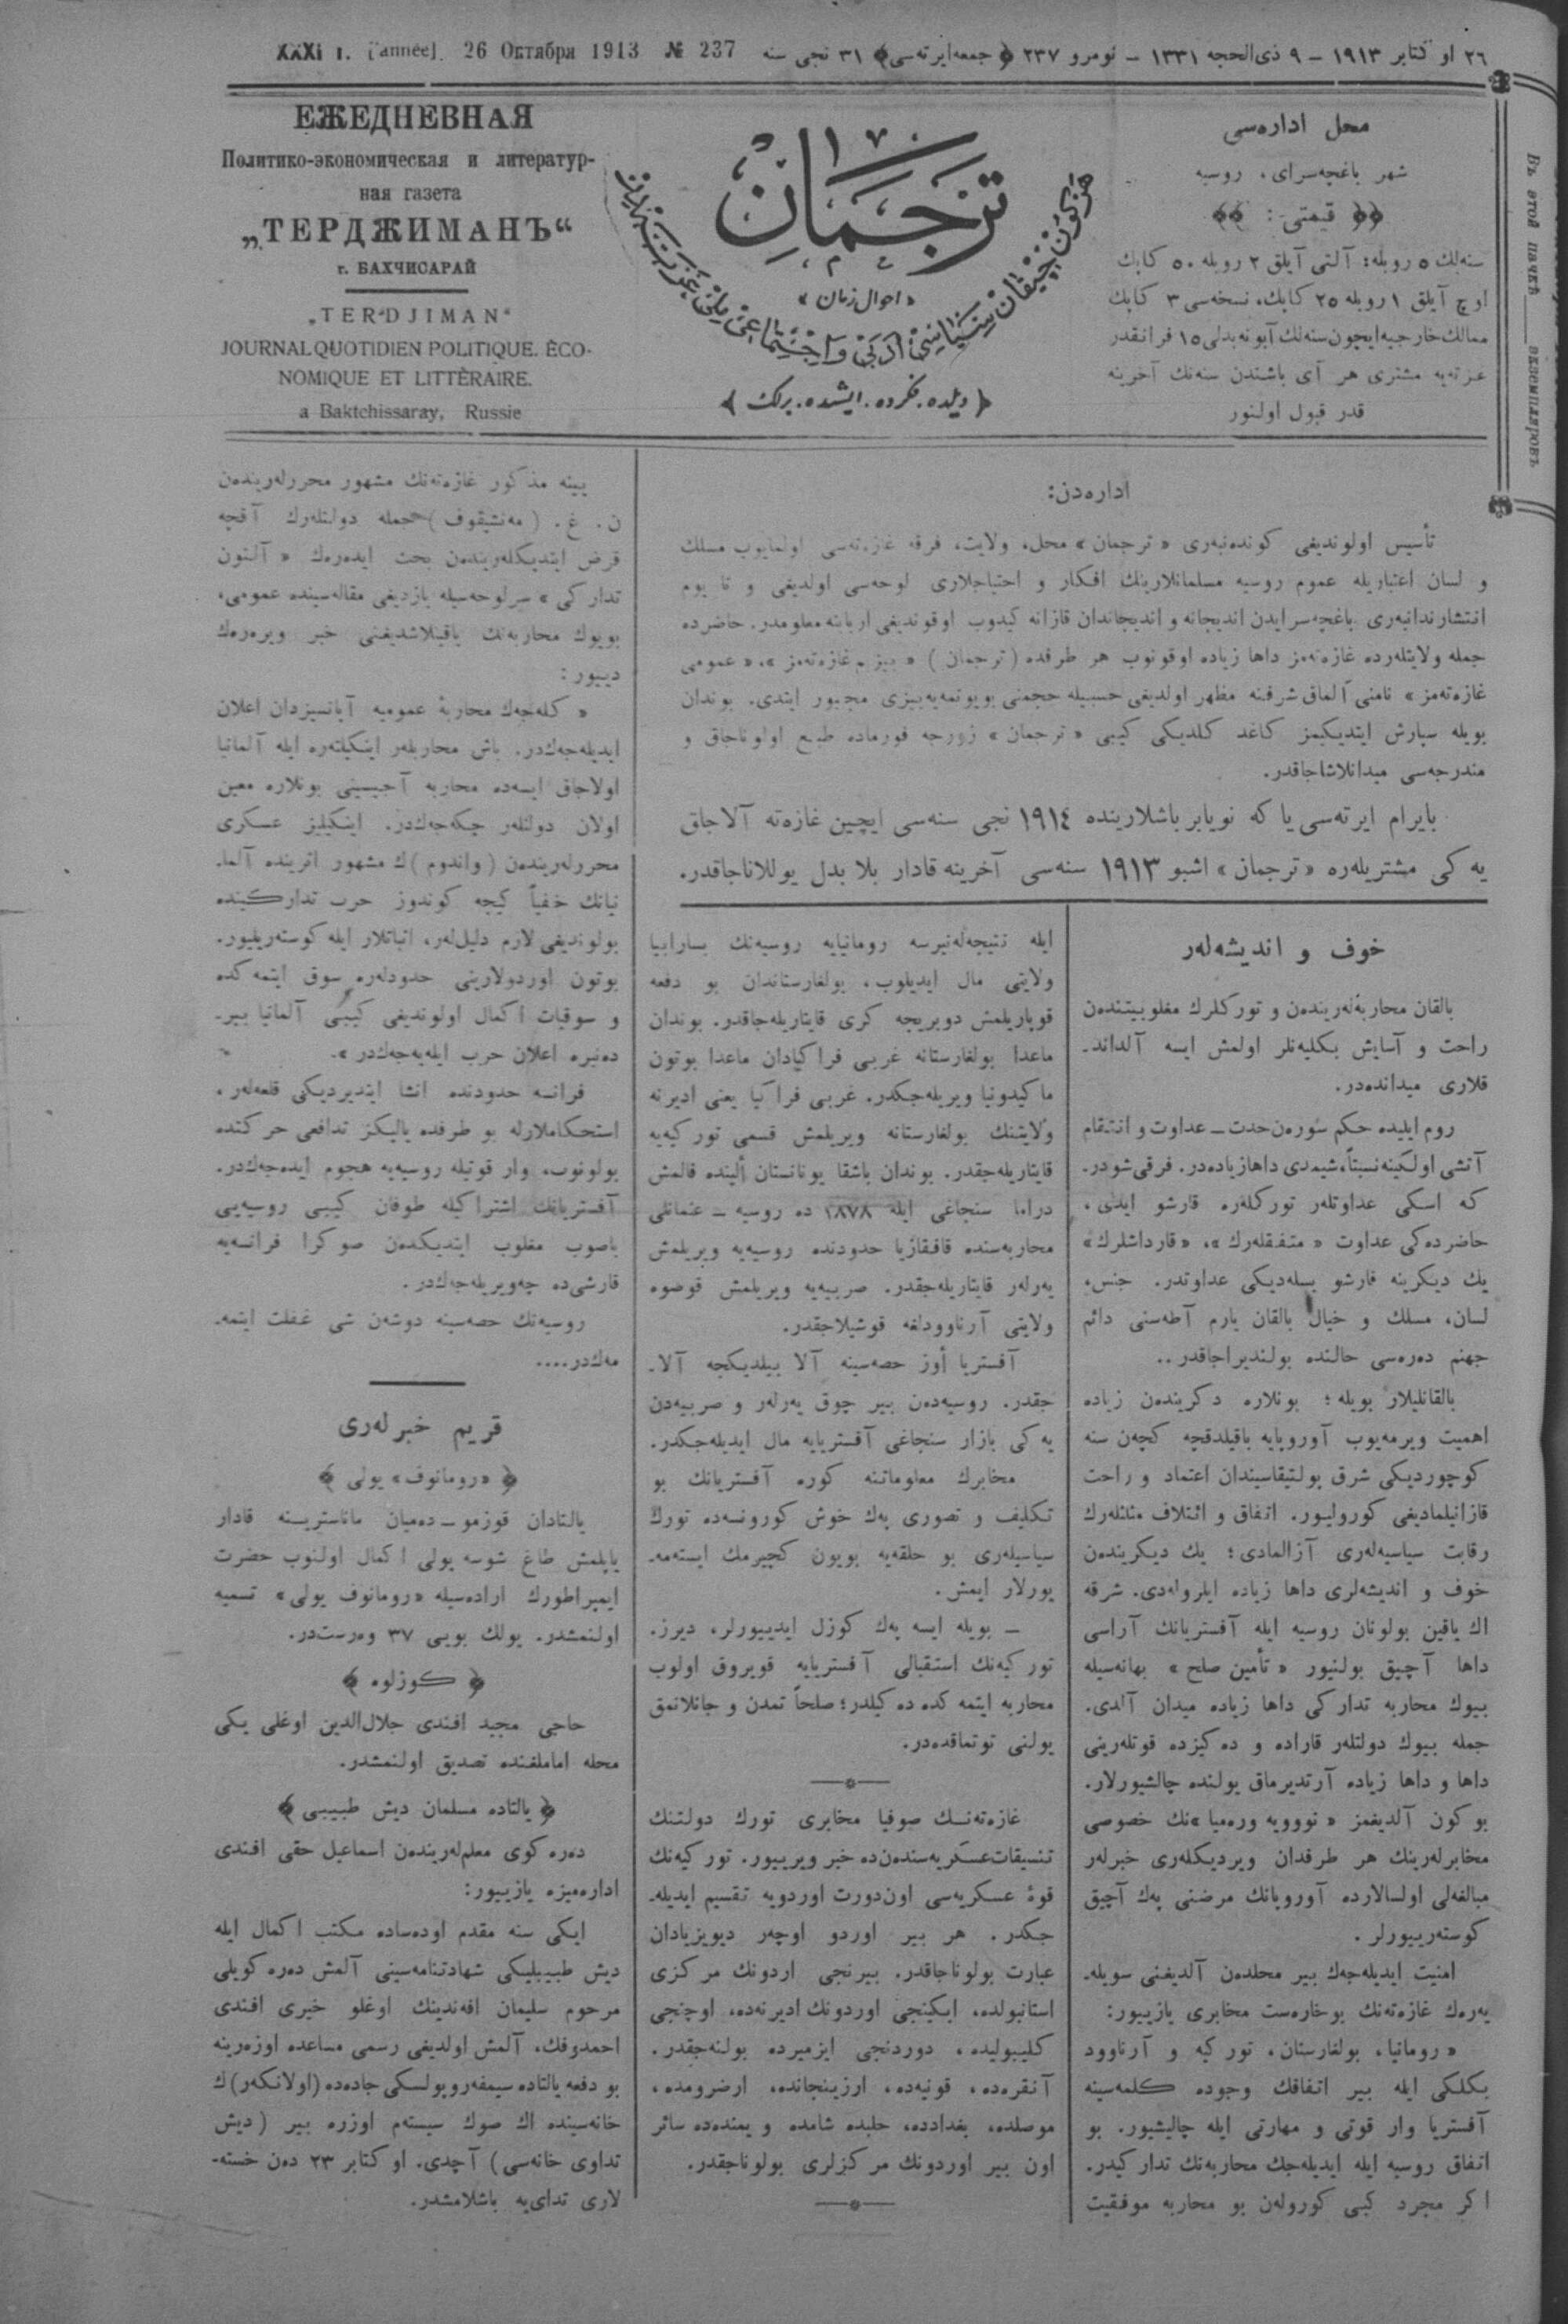 XXXI г. [année]. 26 Октября 1913 № 237
٢٦ اوكتابر ١٩١٣ – ٩ ذی‌الحجه ١٣٣١ – نومرو ٢٣٧ ﴿ جمعه‌ایرته‌سی﴾ ٣١ نجی سنه
ЕЖЕДНЕВНАЯ
Политико-экономическая и литератур-
ная газета
„ТЕРДЖИМАНЪ“
г. БАХЧИСАРАЙ
„TERDJIMAN“
JOURNAL QUOTIDIEN POLITIQUE. ÉCO-
NOMIQUE ET LITTÈRAIRE.
a Baktchissaray, Russie
ترجمان
« احوال زمان »
هركون چیقان سیاسی ادبی و اجتماعی ملی غزته‌در
﴿ دیلده. فكرده. ایشده. برلك ﴾
محل اداره‌سی
شهر باغچه‌سرای، روسیه
﴿﴿ قیمتی: ﴾﴾
سنه‌لك ٥ روبله؛ آلتی آیلق ٢ روبله ٥٠ كاپك
اوچ آیلق ١ روبله ٢٥ كاپك، نسخه‌سی ٣ كاپك
ممالك خارجیه‌ایچون سنه‌لك آبونه‌بدلی ١٥ فرانقدر
غزته‌یه مشتری هر آی باشندن سنه‌نك آخرینه
قدر قبول اولنور
Въ этой пачкѣ экземпляровъ
اداره‌دن:
تأسیس اولوندیغی كوندەنبەری « ترجمان » محل، ولایت، فرقه غازەتەسی اولمایوب مسلك
و لسان اعتباریله عموم روسیه مسلمانلارینك افكار و احتیاجلاری لوحه‌سی اولدیغی و تا یوم
انتشارندانبەری باغچه‌سرایدن اندیجانه و اندیجاندان قازانه كیدوب اوقوندیغی اربابنه معلومدر. حاضرده
جمله ولایتلەرده غازەتەمز داها زیاده اوقونوب هر طرفده (ترجمان) « بیزم غازەتەمز »، « عمومی
غازەتەمز » نامنی آلماق شرفنه مظهر اولدیغی حسبیله حجمنی بویوتمەیه بیزی مجبور ایتدی. بوندان
بویله سپارش ایتدیكیمز كاغد كلدیكی كیبی « ترجمان » زورجه فورماده طبع اولوناجاق و
مندرجه‌سی میدانلاشاجاقدر.
بایرام ایرته‌سی یا كه نویابر باشلارینده ١٩١٤ نجی سنه‌سی ایچین غازەته آلاجاق
یه كی مشتریلەره « ترجمان » اشبو ١٩١٣ سنه‌سی آخرینه قادار بلا بدل یوللاناجاقدر.
خوف و اندیشه‌لەر
بالقان محاربه‌لەریندەن و توركلرك مغلوبیتندەن
راحت و آسایش بكلیەنلر اولمش ایسه آلداند-
قلاری میداندەدر.
روم ایلیده حكم سورەن حدت – عداوت و انتقام
آتشی اولكینه نسبتاً، شیمدی داها زیادەدر. فرقی شودر.
كه اسكی عداوتلەر توركلەره قارشو ایدی،
حاضردەكی عداوت « متفقلەرك »، « قارداشلرك »
یك دیكرینه قارشو بسله‌دیكی عداوتدر. جنس،
لسان، مسلك و خیال بالقان یارم آطه‌سنی دائم
جهنم دەرەسی حالنده بولندیراجاقدر..
بالقانلیلار بویله؛ بونلاره دكریندەن زیاده
اهمیت ویرمەیوب آوروپایه باقیلدقچه كچەن سنه
كوچوردیكی شرق پولیتیقاسیندان اعتماد و راحت
قازانیلمادیغی كورولیور. اتفاق و ائتلاف مثلثلەرك
رقابت سیاسیه‌لەری آزالمادی؛ یك دیكریندەن
خوف و اندیشه‌لری داها زیاده ایلروله‌دی. شرقه
اك یاقین بولونان روسیه ایله آفستریانك آراسی
داها آچیق بولنیور « تأمین صلح » بهانه‌سیله
بیوك محاربه تداركی داها زیاده میدان آلدی.
جمله بیوك دولتلەر قاراده و دەكیزده قوتلەرینی
داها و داها زیاده آرتدیرماق یولنده چالشیورلار.
بو كون آلدیغمز « نوویه ورەمیا »نك خصوصی
مخابرلەرینك هر طرفدان ویردیكلەری خبرلەر
مبالغه‌لی اولسالارده آوروپانك مرضنی پەك آچیق
كوستەرییورلر.
امنیت ایدیله‌جەك بیر محلدەن آلدیغنی سویله-
یەرەك غازەتەنك بوخارەست مخابری یازییور:
« رومانیا، بولغارستان، توركیه و آرناوود
بكلكی ایله بیر اتفاقك وجوده كلمه‌سینه
آفستریا وار قوتی و مهارتی ایله چالیشیور. بو
اتفاق روسیه ایله ایدیله‌جك محاربه‌نك تدار كیدر.
اكر مجرد كبی كورولەن بو محاربه موفقیت
ایله نتیجه‌لەنیرسه رومانیایه روسیه‌نك بسارابیا
ولایتی مال ایدیلوب، بولغارستاندان بو دفعه
قوپاریلمش دوبریجه كری قایتاریله‌جاقدر. بوندان
ماعدا بولغارستانه غربی فراكیادان ماعدا بوتون
ماكیدونیا ویریله‌جكدر. غربی فراكیا یعنی ادیرنه
ولایتنك بولغارستانه ویریلمش قسمی توركیه‌یه
قایتاریله‌جقدر. بوندان باشقا یونانستان ألینده قالمش
دراما سنجاغی ایله ١٨٧٨ ده روسیه – عثمانلی
محاربه‌سنده قافقازیا حدودنده روسیه‌یه ویریلمش
یەرلەر قایتاریله‌جقدر. صربیه‌یه ویریلمش قوصوه
ولایتی آرناوودلغه قوشیلاجقدر.
آفستریا أوز حصه‌سینه آلا بیلدیكجه آلا-
جقدر. روسیه‌دەن بیر چوق یەرلەر و صربیه‌دن
یه كی بازار سنجاغی آفستریایه مال ایدیله‌جكدر.
مخابرك معلوماتنه كوره آفستریانك بو
تكلیف و تصوری پەك خوش كورونسەده تورك
سیاسیلەری بو حلقه‌یه بویون كچیرمك ایستەمە-
یورلار ایمش.
– بویله ایسه پەك كوزل ایدییورلر، دیرز.
توركیه‌نك استقبالی آفستریایه قویروق اولوب
محاربه ایتمه كده دەكیلدر؛ صلحاً تمدن و جانلانمق
یولنی توتماقدەدر.
غازەتەنك صوفیا مخابری تورك دولتنك
تنسیقات عسكریه‌سندەن‌ده خبر ویرییور. توركیه‌نك
قوۀ عسكریه‌سی اون‌دورت اوردویه تقسیم ایدیله-
جكدر. هر بیر اوردو اوچەر دیویزیادان
عبارت بولوناجاقدر. بیرنجی اردونك مركزی
استانبولده، ایكینجی اوردونك ادیرنەده، اوچنجی
كلیبولیده، دوردنجی ایزمیرده بولنه‌جقدر.
آنقرەده، قونیەده، ارزینجانده، ارضرومده،
موصلده، بغدادده، حلبده شامده و یمندەده سائر
اون بیر اوردونك مركزلری بولوناجقدر.
ینه مذكور غازەتەنك مشهور محررلەریندەن
ن. غ. (مەنشیقوف) جمله دولتلەرك آقچه
قرض ایتدیكلەریندەن بحث ایدەرەك « آلتون
تداركی » سرلوحه‌سیله یازدیغی مقاله‌سینده عمومی،
بویوك محاربه‌نك یاقینلاشدیغنی خبر ویرەرەك
دییور:
« كله‌جەك محاربۀ عمومیه آپانسیزدان اعلان
ایدیله‌جەكدر. باش محاربلەر اینكیلتەره ایله آلمانیا
اولاجاق ایسەده محاربه آجیسینی بونلاره معین
اولان دولتلەر چكه‌جەكدر. اینكیلیز عسكری
محررلەریندەن (واندوم)ك مشهور اثرینده آلما-
نیانك خفیاً كیجه كوندوز حرب تداركینده
بولوندیغی لازم دلیللەر، اثباتلار ایله كوستەریلیور.
بوتون اوردولارینی حدودلەره سوق ایتمه كده
و سوقیات اكمال اولوندیغی كیبی آلمانیا بیر-
دەنبره اعلان حرب ایله‌یه‌جەكدر ».
فرانسه حدودنده انشا ایتدیردیكی قلعه‌لەر،
استحكاملارله بو طرفده یالیكز تدافعی حركتده
بولونوب، وار قوتیله روسیه‌یه هجوم ایده‌جەكدر.
آفستریانك اشتراكیله طوفان كیبی روسیه‌یی
باصوب مغلوب ایتدیكدەن صوكرا فرانسه‌یه
قارشی‌ده چەویریله‌جەكدر.
روسیه‌نك حصه‌سینه دوشەن شی غفلت ایتمه-
مەكدر....
قریم خبرلەری
﴿ «رومانوف» یولی ﴾
یالتادان قوزمو – دەمیان ماناستریسنه قادار
یاپلمش طاغ شوسه یولی اكمال اولنوب حضرت
ایمپراطورك اراده‌سیله «رومانوف یولی» تسمیه
اولنمشدر. یولك بویی ٣٧ وەرست‌در.
﴿ كوزلوه ﴾
حاجی مجید افندی جلال‌الدین اوغلی یكی
محله اماملغنده تصدیق اولنمشدر.
﴿ یالتاده مسلمان دیش طبیبی ﴾
دەره‌كوی معلملەریندەن اسماعیل حقی افندی
ادارەمیزه یازییور:
ایكی سنه مقدم اودەساده مكتب اكمال ایله
دیش طبیبلیكی شهادتنامه‌سینی آلمش دەره كویلی
مرحوم سلیمان افەندینك اوغلو خیری افندی
احمدوفك، آلمش اولدیغی رسمی مساعده اوزەرینه
بو دفعه یالتاده سیمفەروپولسكی جادەده (اولانكەر)ك
خانه‌سینده اك صوك سیستەم اوزره بیر (دیش
تداوی خانه‌سی) آچدی. اوكتابر ٢٣ دەن خسته-
لاری تدای‌یه باشلامشدر.